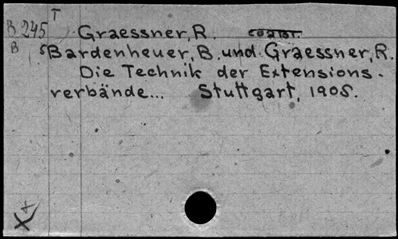 T
B 245 Graessner, R.
B Bardenheuer, B. und Graessner, R.
Die Technik der Extensions-
verbände... Stuttgart, 1905.